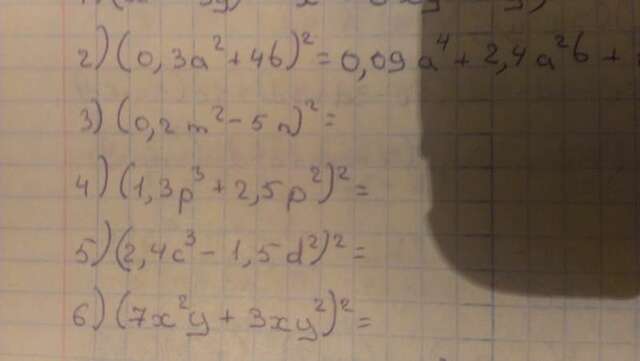 2) (0,3a² + 4b)² = 0,09a⁴ + 2,4a²b +
3) (0,2m² - 5n)² =
4) (1,3p³ + 2,5p²)² =
5) (2,4c³ - 1,5d²)² =
6) (7x²y + 3xy²)² =